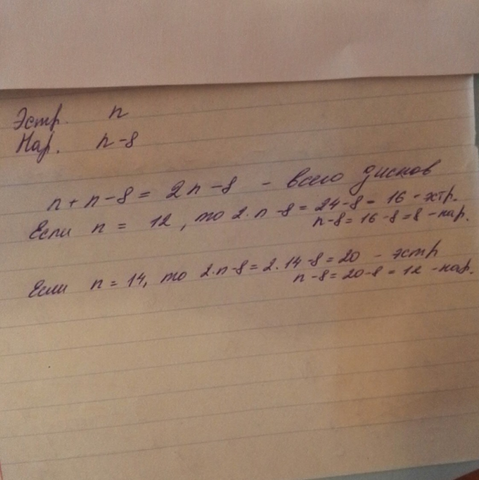 Эстр. n
Нар. n-8
n+n-8 = 2n-8 - всего дисков
Если n = 12, то 2·n-8=24-8=16-эстр.
n-8=16-8=8-нар.
Если n=14, то 2·n-8=2·14-8=20 - эстр
n-8=20-8=12-нар.